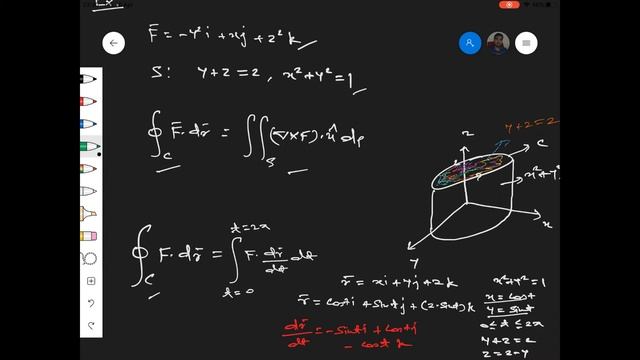 Ex:
F̄ = -y²i + xj + z²k
S: y+z=2, x²+y²=1
∮_C F̄·dr̄ = ∬_S (∇×F)·n̂ ds
y+z=2
z
C
x²+y²
x
y
∮_C F·dr̄ = ∫_{t=0}^{t=2π} F·dr̄/dt dt
r̄ = xi+yj+zk
r̄ = costi + sintj + (2-sint)k
dr̄/dt = -sinti + costj - cost k
x²+y²=1
x=cost
y=sint
0≤t≤2π
y+z=2
z=2-y